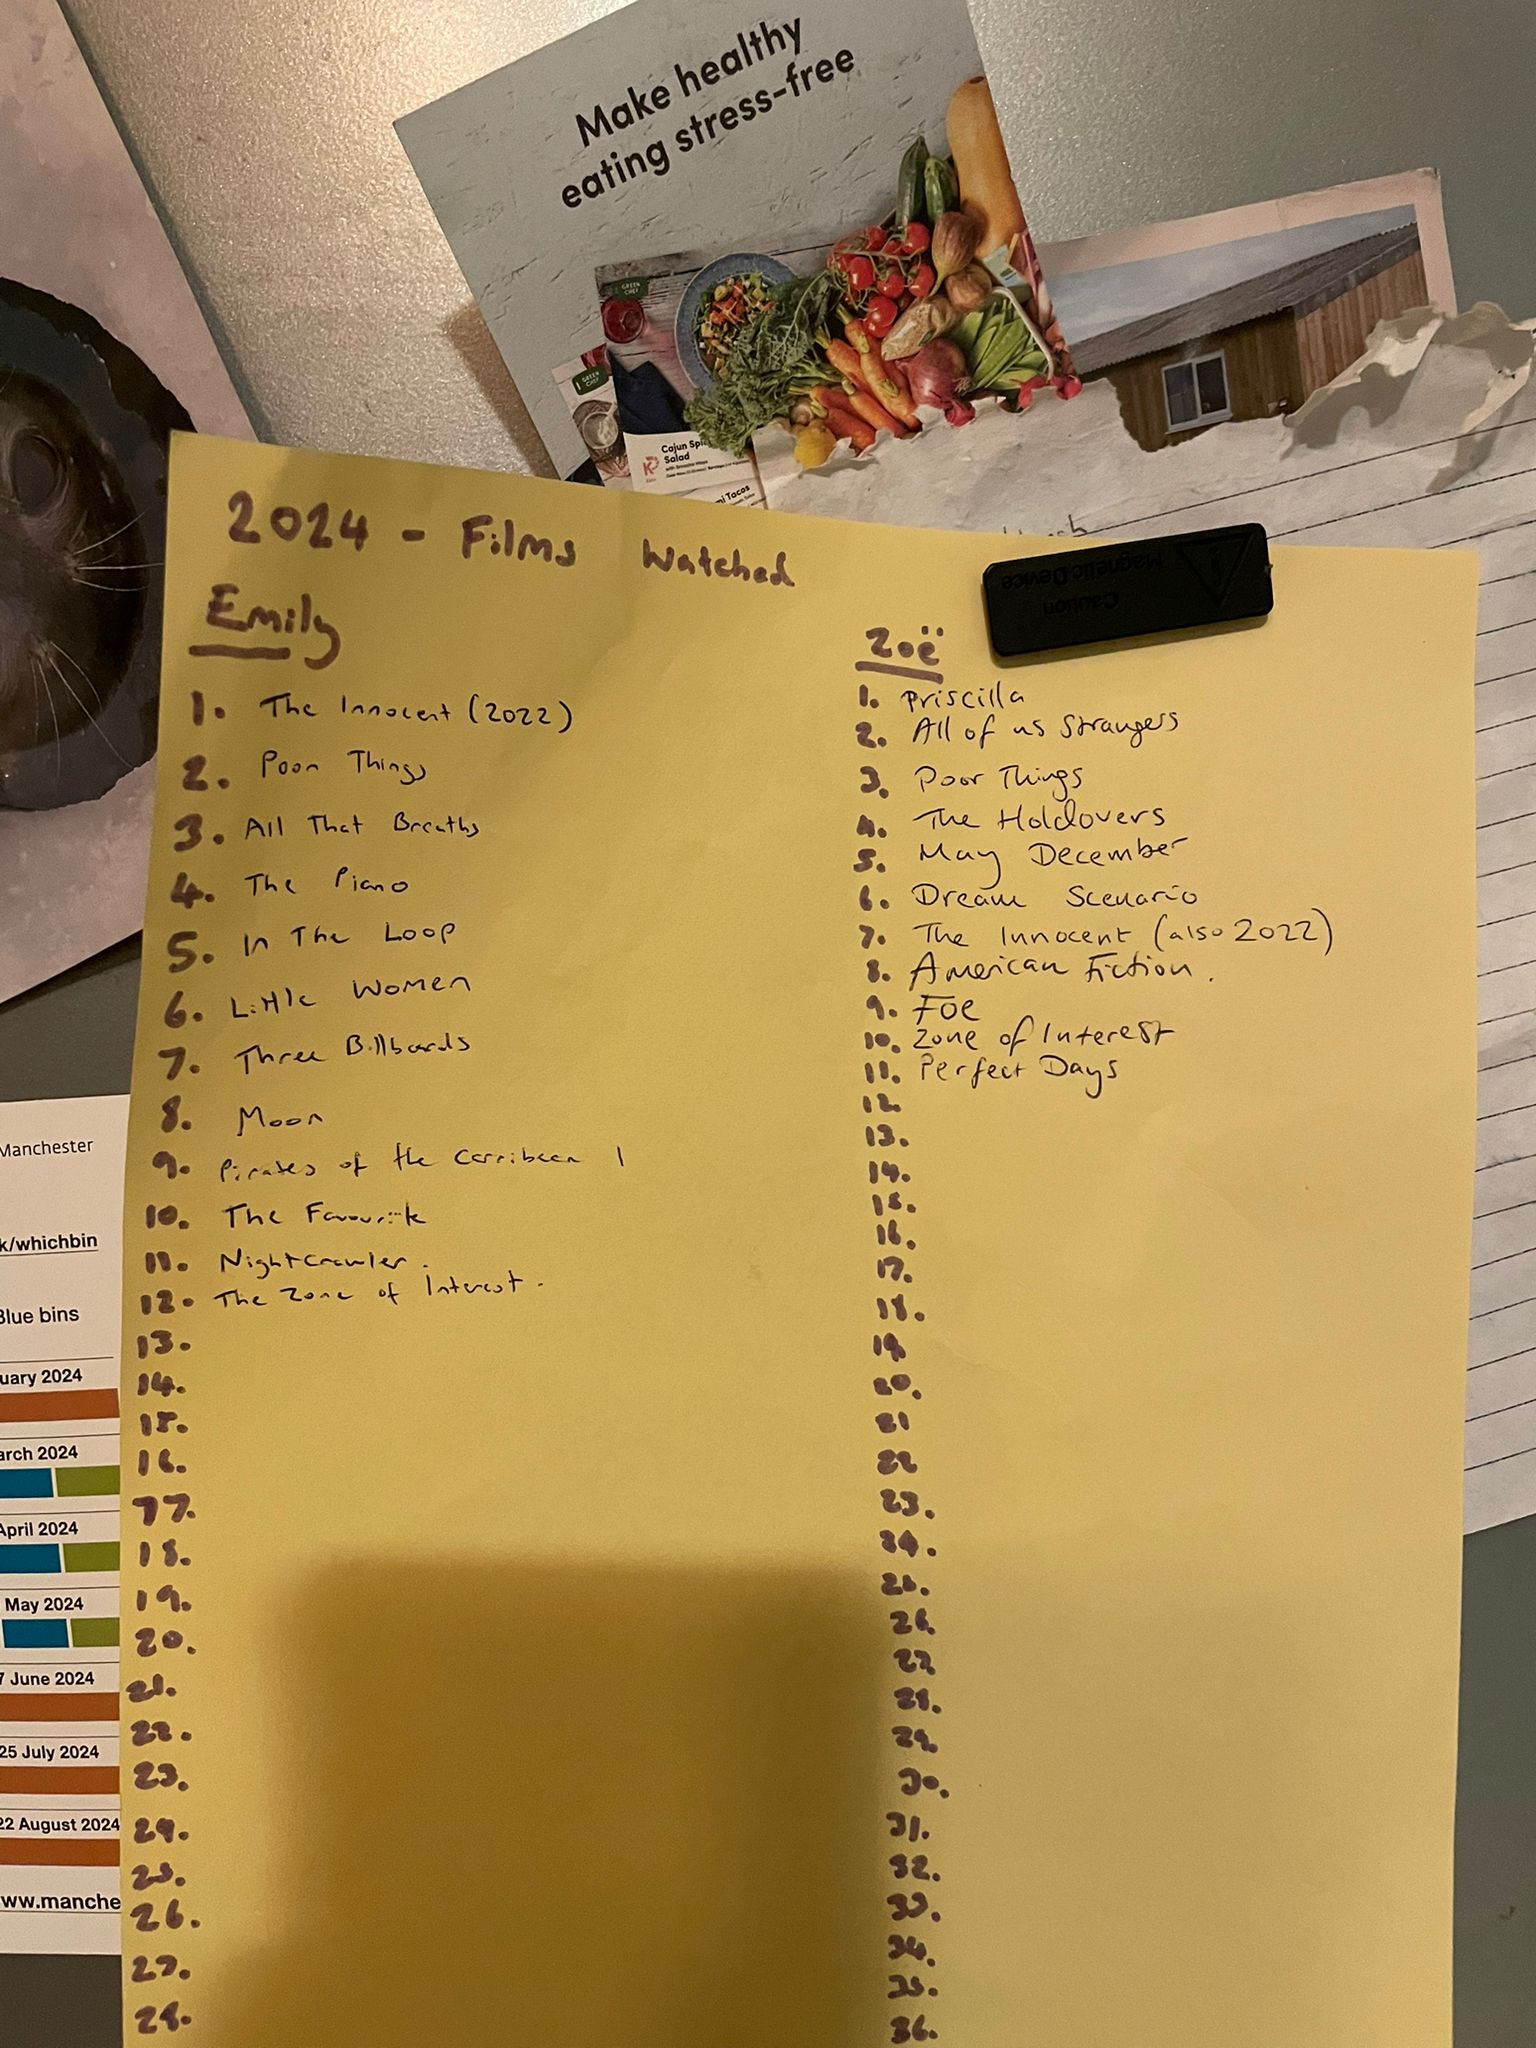 Make healthy
eating stress-free
GREEN
CHEF
GREEN
CHEF
Cajun
Salad
Tacos
2024 - Films Watched
Caution
Magnetic Device
Emily
1. The Innocent (2022)
2. Poor Things
3. All That Breaths
4. The Piano
5. In The Loop
6. Little Women
7. Three Billboards
8. Moon
9. Pirates of the Carribean 1
10. The Favourite
11. Nightcrawler.
12. The Zone of Interest.
13.
14.
15.
16.
17.
18.
19.
20.
21.
22.
23.
24.
25.
26.
27.
28.
Zoë
1. Priscilla
2. All of us Strangers
3. Poor Things
4. The Holdovers
5. May December
6. Dream Scenario
7. The Innocent (also 2022)
8. American Fiction.
9. Foe
10. Zone of Interest
11. Perfect Days
12.
13.
14.
15.
16.
17.
18.
19.
20.
21
22
23.
24.
25.
26.
27.
28.
29.
30.
31.
32.
33.
34.
35.
36.
Manchester
k/whichbin
Blue bins
uary 2024
arch 2024
April 2024
May 2024
7 June 2024
25 July 2024
22 August 2024
ww.manche